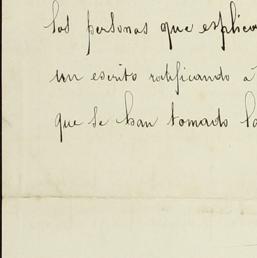 las personas que explica
un escrito ratificando á
que se han tomado la